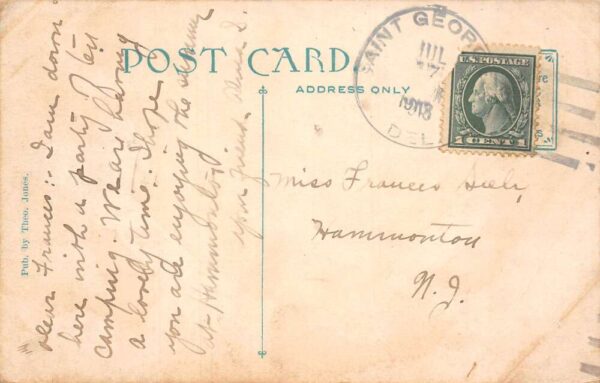 POST CARD
ADDRESS ONLY
Pub. by Theo. Jones.
Dear Frances:- I am down
here with a party of ten
camping. We are having
a lovely time. I hope
you are enjoying the summer
at Hammonton.
your friend,
SAINT GEOR
JUL
17
1913
DEL
U.S. POSTAGE
1 CENT 1
Miss Frances
Hammonton
N. J.